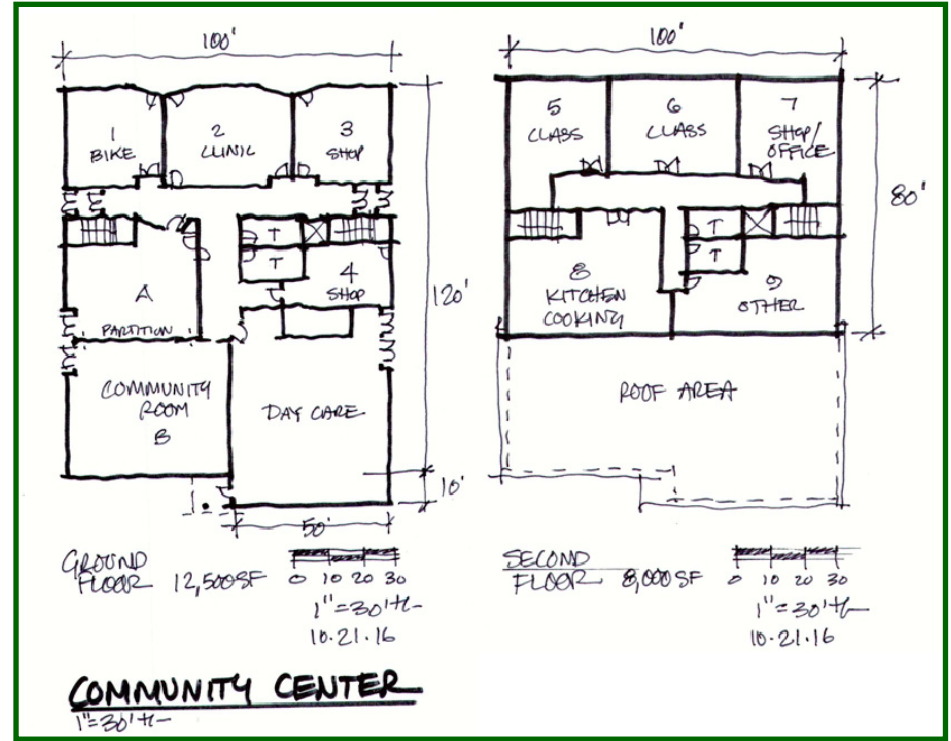 100'
1
BIKE
2
CLINIC
3
SHOP
T
T
4
SHOP
A
PARTITION
COMMUNITY
ROOM
B
DAY CARE
120'
10'
50'
GROUND
FLOOR 12,500 SF
0 10 20 30
1"=30'+/-
10.21.16
COMMUNITY CENTER
1"=30'+/-
100'
5
CLASS
6
CLASS
7
SHOP/
OFFICE
80'
T
T
8
KITCHEN
COOKING
9
OTHER
ROOF AREA
SECOND
FLOOR 8,000 SF
0 10 20 30
1"=30'+/-
10.21.16